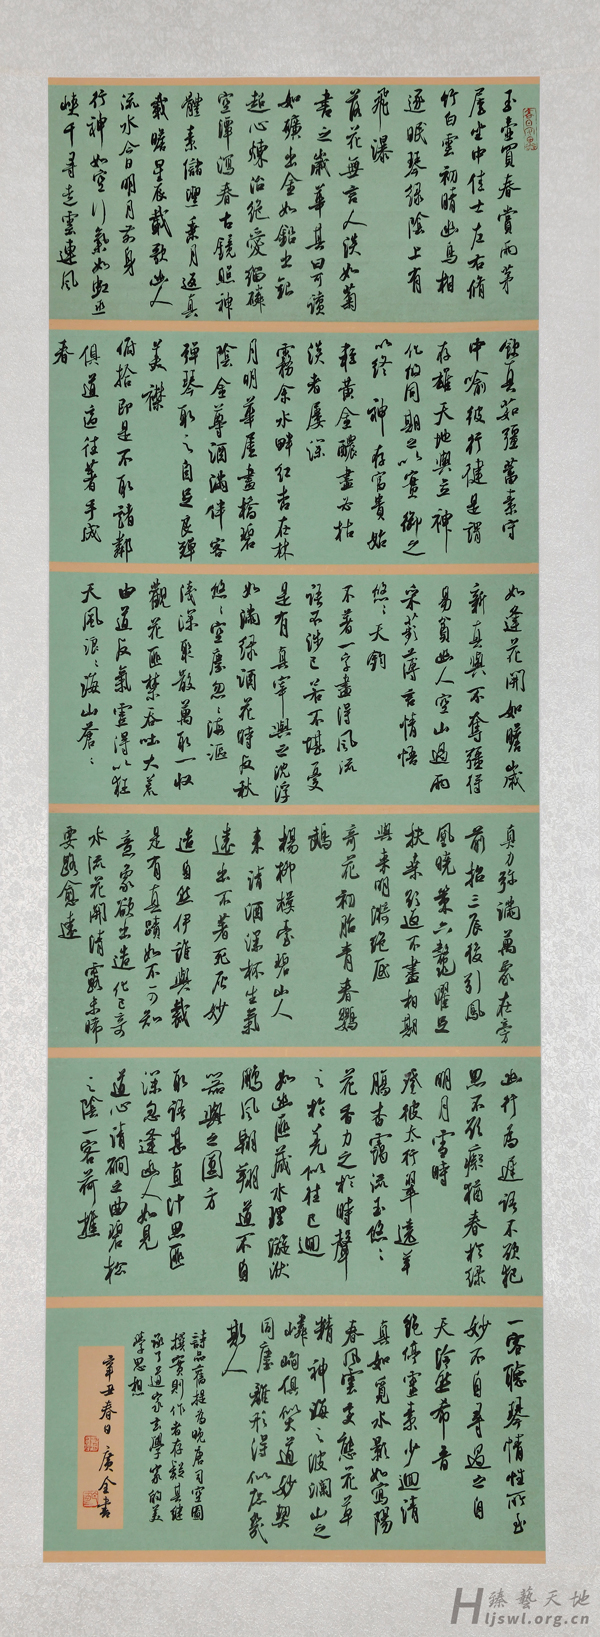 玉壺買春賞雨茅
屋坐中佳士左右脩
竹白雲初晴幽鳥相
逐眠琴綠陰上有
飛瀑
落花無言人淡如菊
書之歲華其曰可讀
如礦出金如鉛出銀
超心煉冶絕愛緇磷
空潭瀉春古鏡照神
體素儲潔乘月返真
載瞻星辰載歌幽人
流水今日明月前身
行神如空行氣如虹巫
峽千尋走雲連風
飲真茹彊蓄素守
中喻彼行健是謂
存雄天地與立神
化攸同期之以實御之
以終 神存富貴始
輕黃金醲盡必枯
淡者屢深
霧余水畔紅杏在林
月明華屋畫橋碧
陰金尊酒滿伴客
彈琴取之自足良殫
美襟
俯拾即是不取諸鄰
俱道適往著手成
春
如逢花開如瞻歲
新真與不奪彊得
易貧幽人空山過雨
采蘋薄言情悟
悠悠天鈞
不著一字盡得風流
語不涉已若不堪憂
是有真宰與之沈浮
如滿綠酒花時反秋
悠悠空塵忽忽海漚
淺深聚散萬取一收
觀花匪禁吞吐大荒
由道反氣靈得以狂
天風浪浪海山蒼蒼
真力彌滿萬象在旁
前招三辰後引鳳
凰曉策六鼇濯足
扶桑返不盡相期
與來明漪絕底
奇花初胎青春鸚
鵡
楊柳樓臺碧山人
來清酒深杯生氣
遠出不著死灰妙
造自然伊誰與裁
是有真蹟如不可知
意象欲出造化已奇
水流花開清露未晞
要路愈遠
幽行為遲語不欲犯
思不欲癡猶春於綠
明月雪時
登彼太行翠遶羊
腸杳靄流玉悠悠
花香力之於時聲
之於羌似往已迴
如幽匪藏水理漩洑
鵬風翱翔道不自
器與之圓方
取語甚直計思匪
深忽逢幽人如見
道心清磵之曲碧松
之陰一客荷樵
一客聽琴情性所至
妙不自尋遇之自
天泠然希音
絕佇靈素少迴清
真如覓水影如寫陽
春風雲變態花草
精神海之波瀾山之
嶙峋俱似道妙契
同塵離形得似庶幾
斯人
詩品舊提為晚唐司空圖
撰實則作者存疑其繼
承了道家玄學家的美
學思想
辛丑春日 廣全書
臻藝天地
Hljswl.org.cn